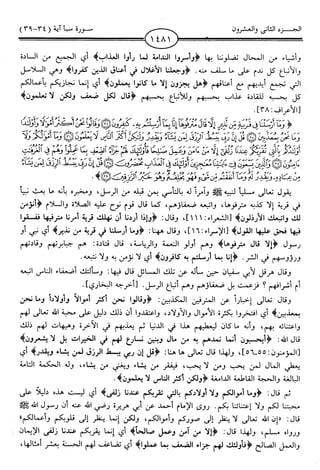 الجـزء الثاني والعشرون
سورة سبأ آية (٣٤-٣٩)
١٤٨١
وأشياء من المحال تضلوننا بها ﴿وأسروا الندامة لما رأوا العذاب﴾ أي الجميع من السادة
والأتباع كل ندم على ما سلف منه. ﴿وجعلنا الأغلال في أعناق الذين كفروا﴾ وهي السلاسل
التي تجمع أيديهم مع أعناقهم ﴿هل يجزون إلا ما كانوا يعملون﴾ أي إنما نجازيكم بأعمالكم
كل بحسبه للقادة عذاب بحسبهم وللأتباع بحسبهم ﴿قال لكل ضعف ولكن لا تعلمون﴾
[الأعراف: ٣٨].
﴿ وَمَا أَرْسَلْنَا فِي قَرْيَةٍ مِّن نَّذِيرٍ إِلَّا قَالَ مُتْرَفُوهَا إِنَّا بِمَا أُرْسِلْتُم بِهِ كَافِرُونَ ۝ وَقَالُوا نَحْنُ أَكْثَرُ أَمْوَالًا وَأَوْلَادًا
يقول تعالى مسلياً لنبيه ﷺ وآمراً له بالتأسي بمن قبله من الرسل، ومخبره بأنه ما بعث نبياً
في قرية إلا كذبه مترفوها، واتبعه ضعفاؤهم، كما قال قوم نوح عليه الصلاة والسلام ﴿أنؤمن
لك واتبعك الأرذلون﴾ [الشعراء: ١١١]، وقال: ﴿وإذا أردنا أن نهلك قرية أمرنا مترفيها ففسقوا
فيها فحق عليها القول﴾ [الإسراء: ١٦]، وقال ههنا: ﴿وما أرسلنا في قرية من نذير﴾ أي نبي أو
رسول ﴿إلا قال مترفوها﴾ وهم أولو النعمة والرياسة، قال قتادة: هم جبابرتهم وقادتهم
ورؤوسهم في الشر. ﴿إنا بما أرسلتم به كافرون﴾ أي لا نؤمن به ولا نتبعه.
وقال هرقل لأبي سفيان حين سأله عن تلك المسائل قال فيها: وسألتك أضعفاء الناس اتبعه
أم أشرافهم ؟ فزعمت بل ضعفاؤهم وهم أتباع الرسل. [أخرجه البخاري].
وقال تعالى إخباراً عن المترفين المكذبين: ﴿وقالوا نحن أكثر أموالاً وأولاداً وما نحن
بمعذبين﴾ أي افتخروا بكثرة الأموال والأولاد، واعتقدوا أن ذلك دليل على محبة الله تعالى لهم
واعتنائه بهم، وأنه ما كان ليعطيهم هذا في الدنيا ثم يعذبهم في الآخرة وهيهات لهم ذلك
قال الله: ﴿أيحسبون أنما نمدهم به من مال وبنين نسارع لهم في الخيرات بل لا يشعرون﴾
[المؤمنون: ٥٥، ٥٦]، ولهذا قال تعالى ها هنا: ﴿قل إن ربي يبسط الرزق لمن يشاء ويقدر﴾ أي
يعطي المال لمن يحب ومن لا يحب، فيفقر من يشاء ويغني من يشاء، وله الحكمة التامة
البالغة والحجة القاطعة الدامغة ﴿ولكن أكثر الناس لا يعلمون﴾.
ثم قال: ﴿وما أموالكم ولا أولادكم بالتي تقربكم عندنا زلفى﴾ أي ليست هذه دليلاً على
محبتنا لكم ولا إعتنائنا بكم. روى الإمام أحمد عن أبي هريرة رضي الله عنه أن رسول الله ﷺ
قال: «إن الله تعالى لا ينظر إلى صوركم وأموالكم، ولكن إنما ينظر إلى قلوبكم وأعمالكم»
ورواه مسلم، ولهذا قال: ﴿إلا من آمن وعمل صالحاً﴾ أي إنما يقربكم عندنا زلفى الإيمان
والعمل الصالح ﴿فأولئك لهم جزاء الضعف بما عملوا﴾ أي تضاعف لهم الحسنة بعشر أمثالها،